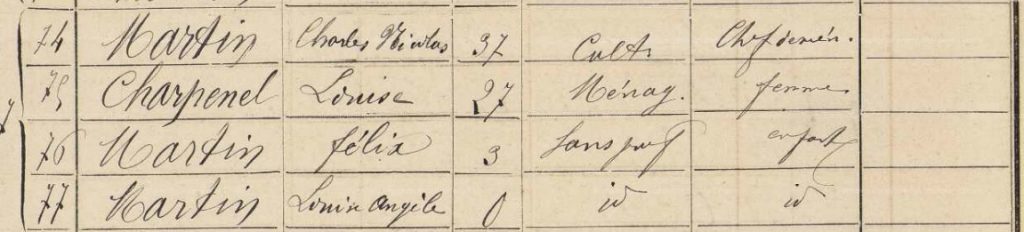 74 Martin Charles Nicolas 37 Cult. Chef de mén.
75 Charpenel Louise 27 Ménag. femme
76 Martin félix 3 Sans prof enfant
77 Martin Louise Angèle 0 id id